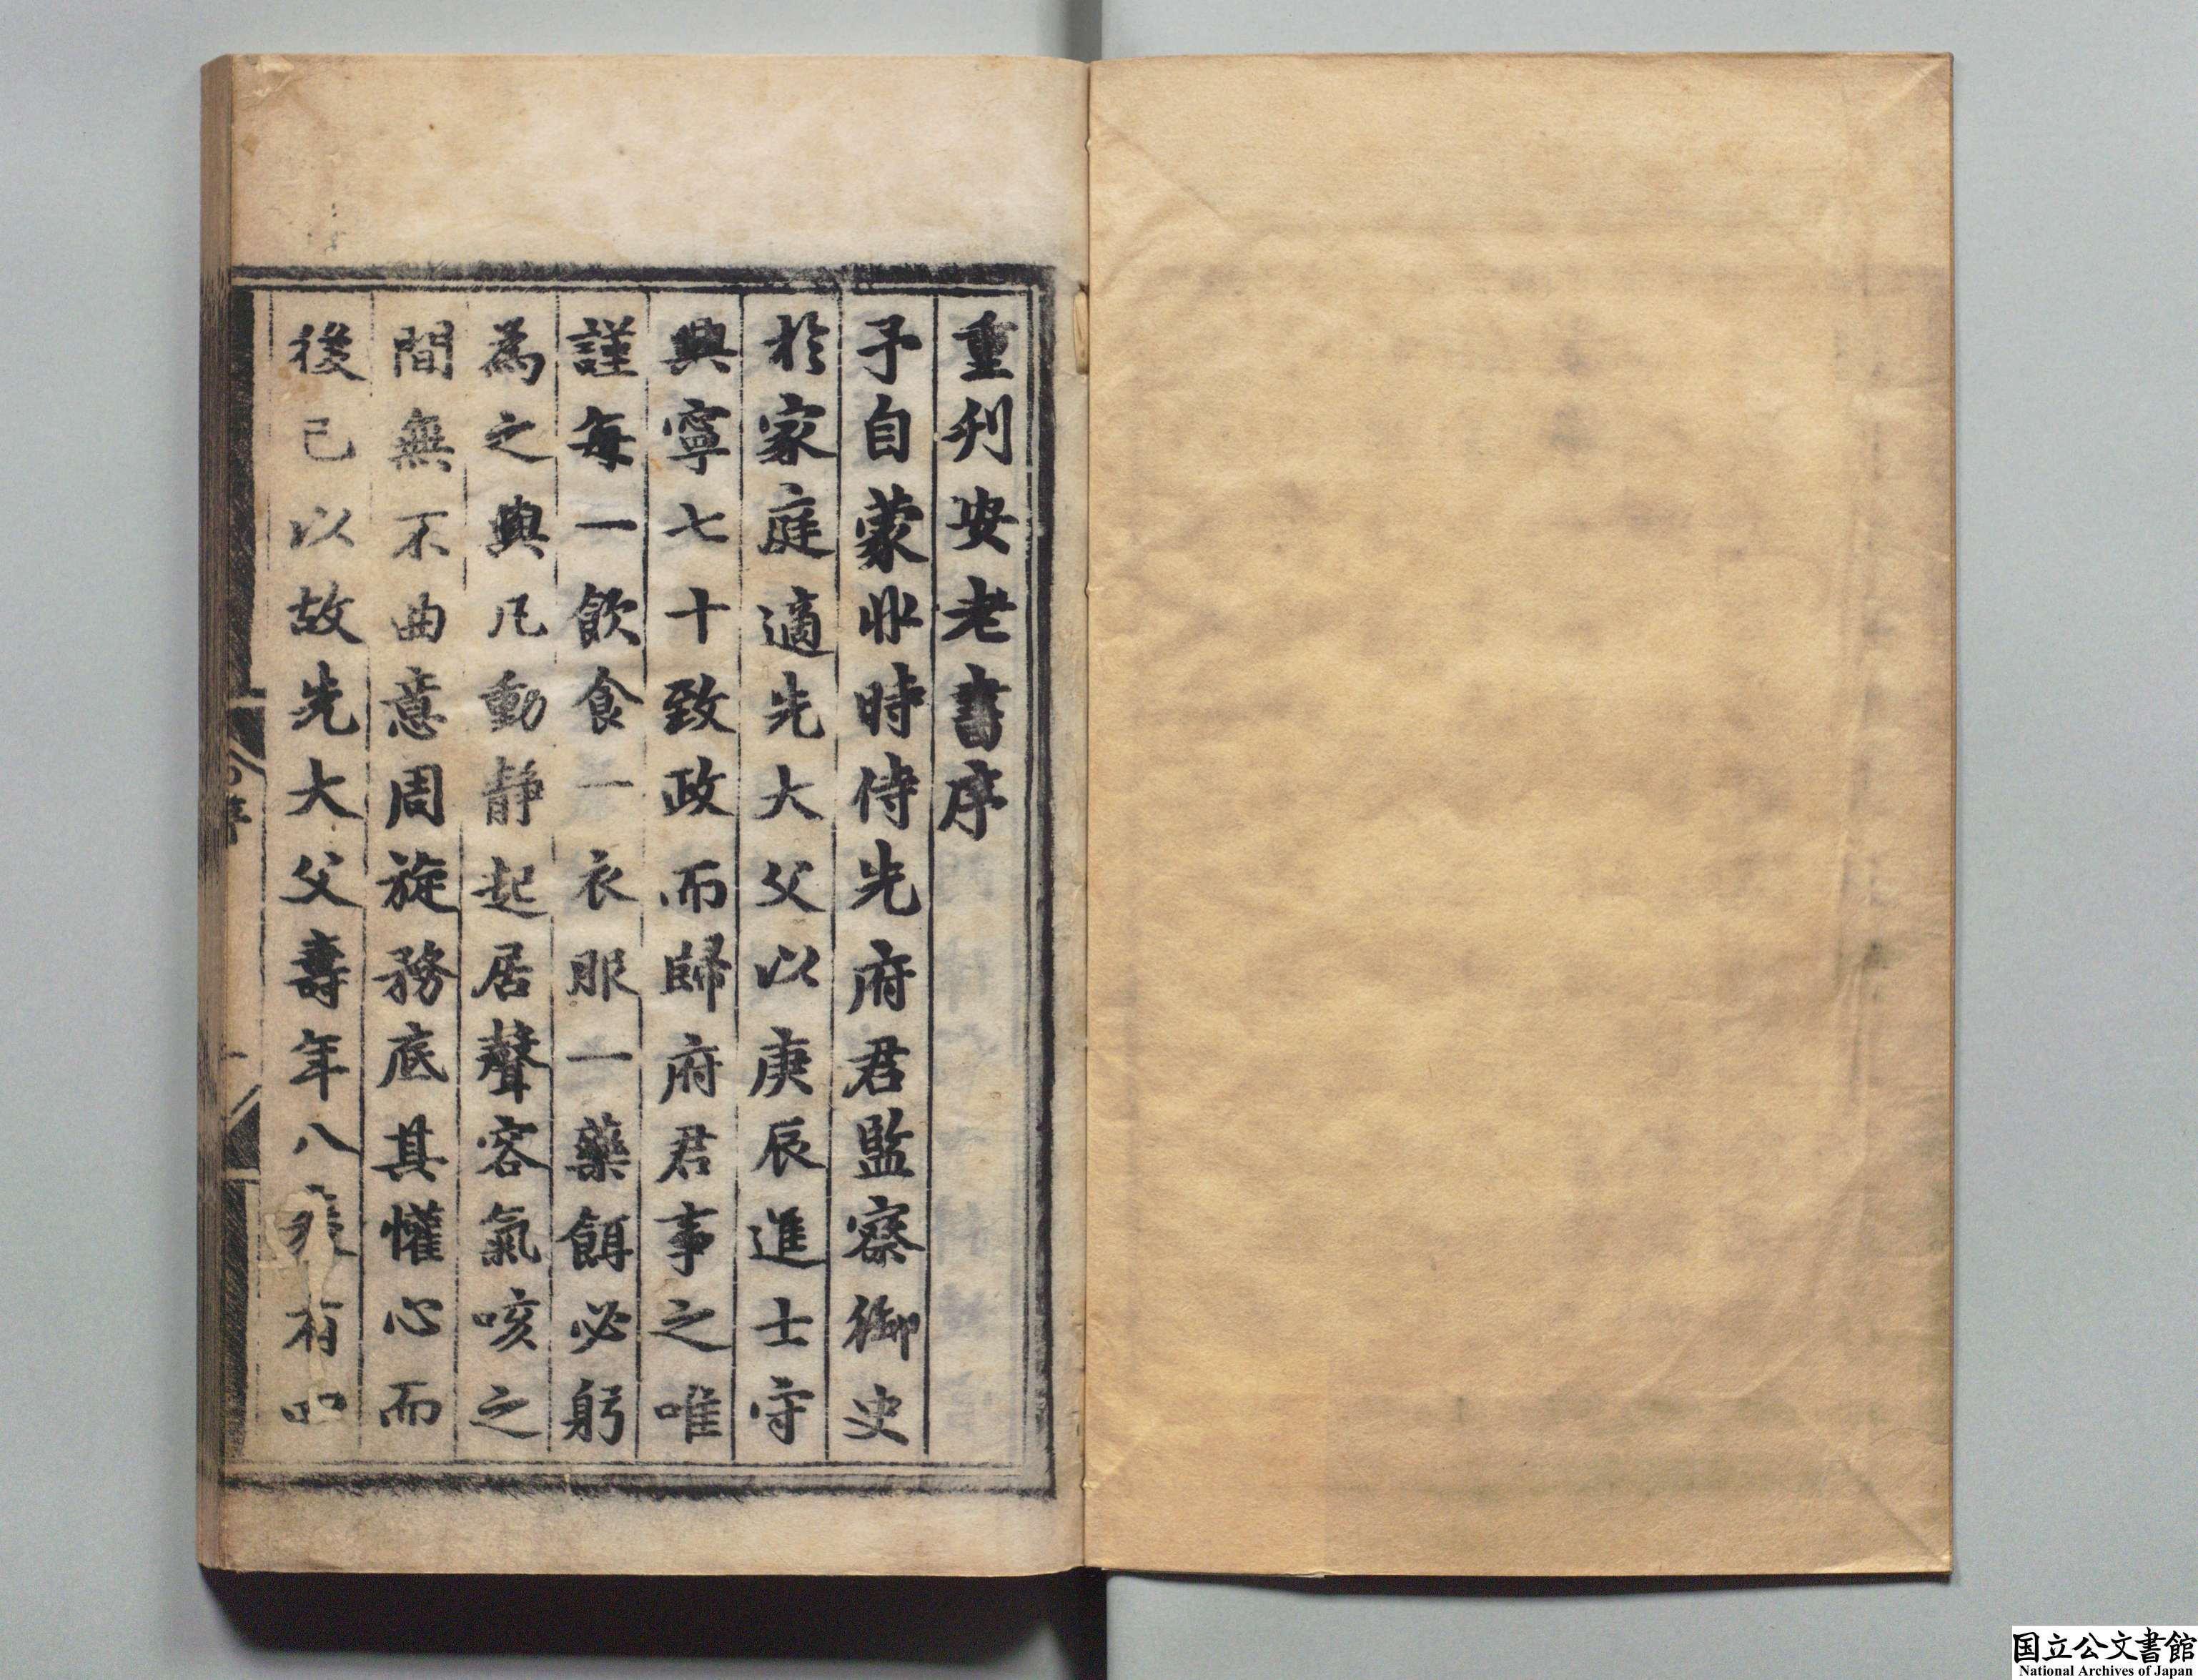 重刋安老書序
予自蒙丱時侍先府君監察御史
於家庭適先大父以庚辰進士守
興寧七十致政而歸府君事之唯
謹每一飲食一衣服一藥餌必躬
為之與凡動靜起居聲容氣咳之
間無不曲意周旋務底其懽心而
後已以故先大父壽年八袠有
序
国立公文書館
National Archives of Japan